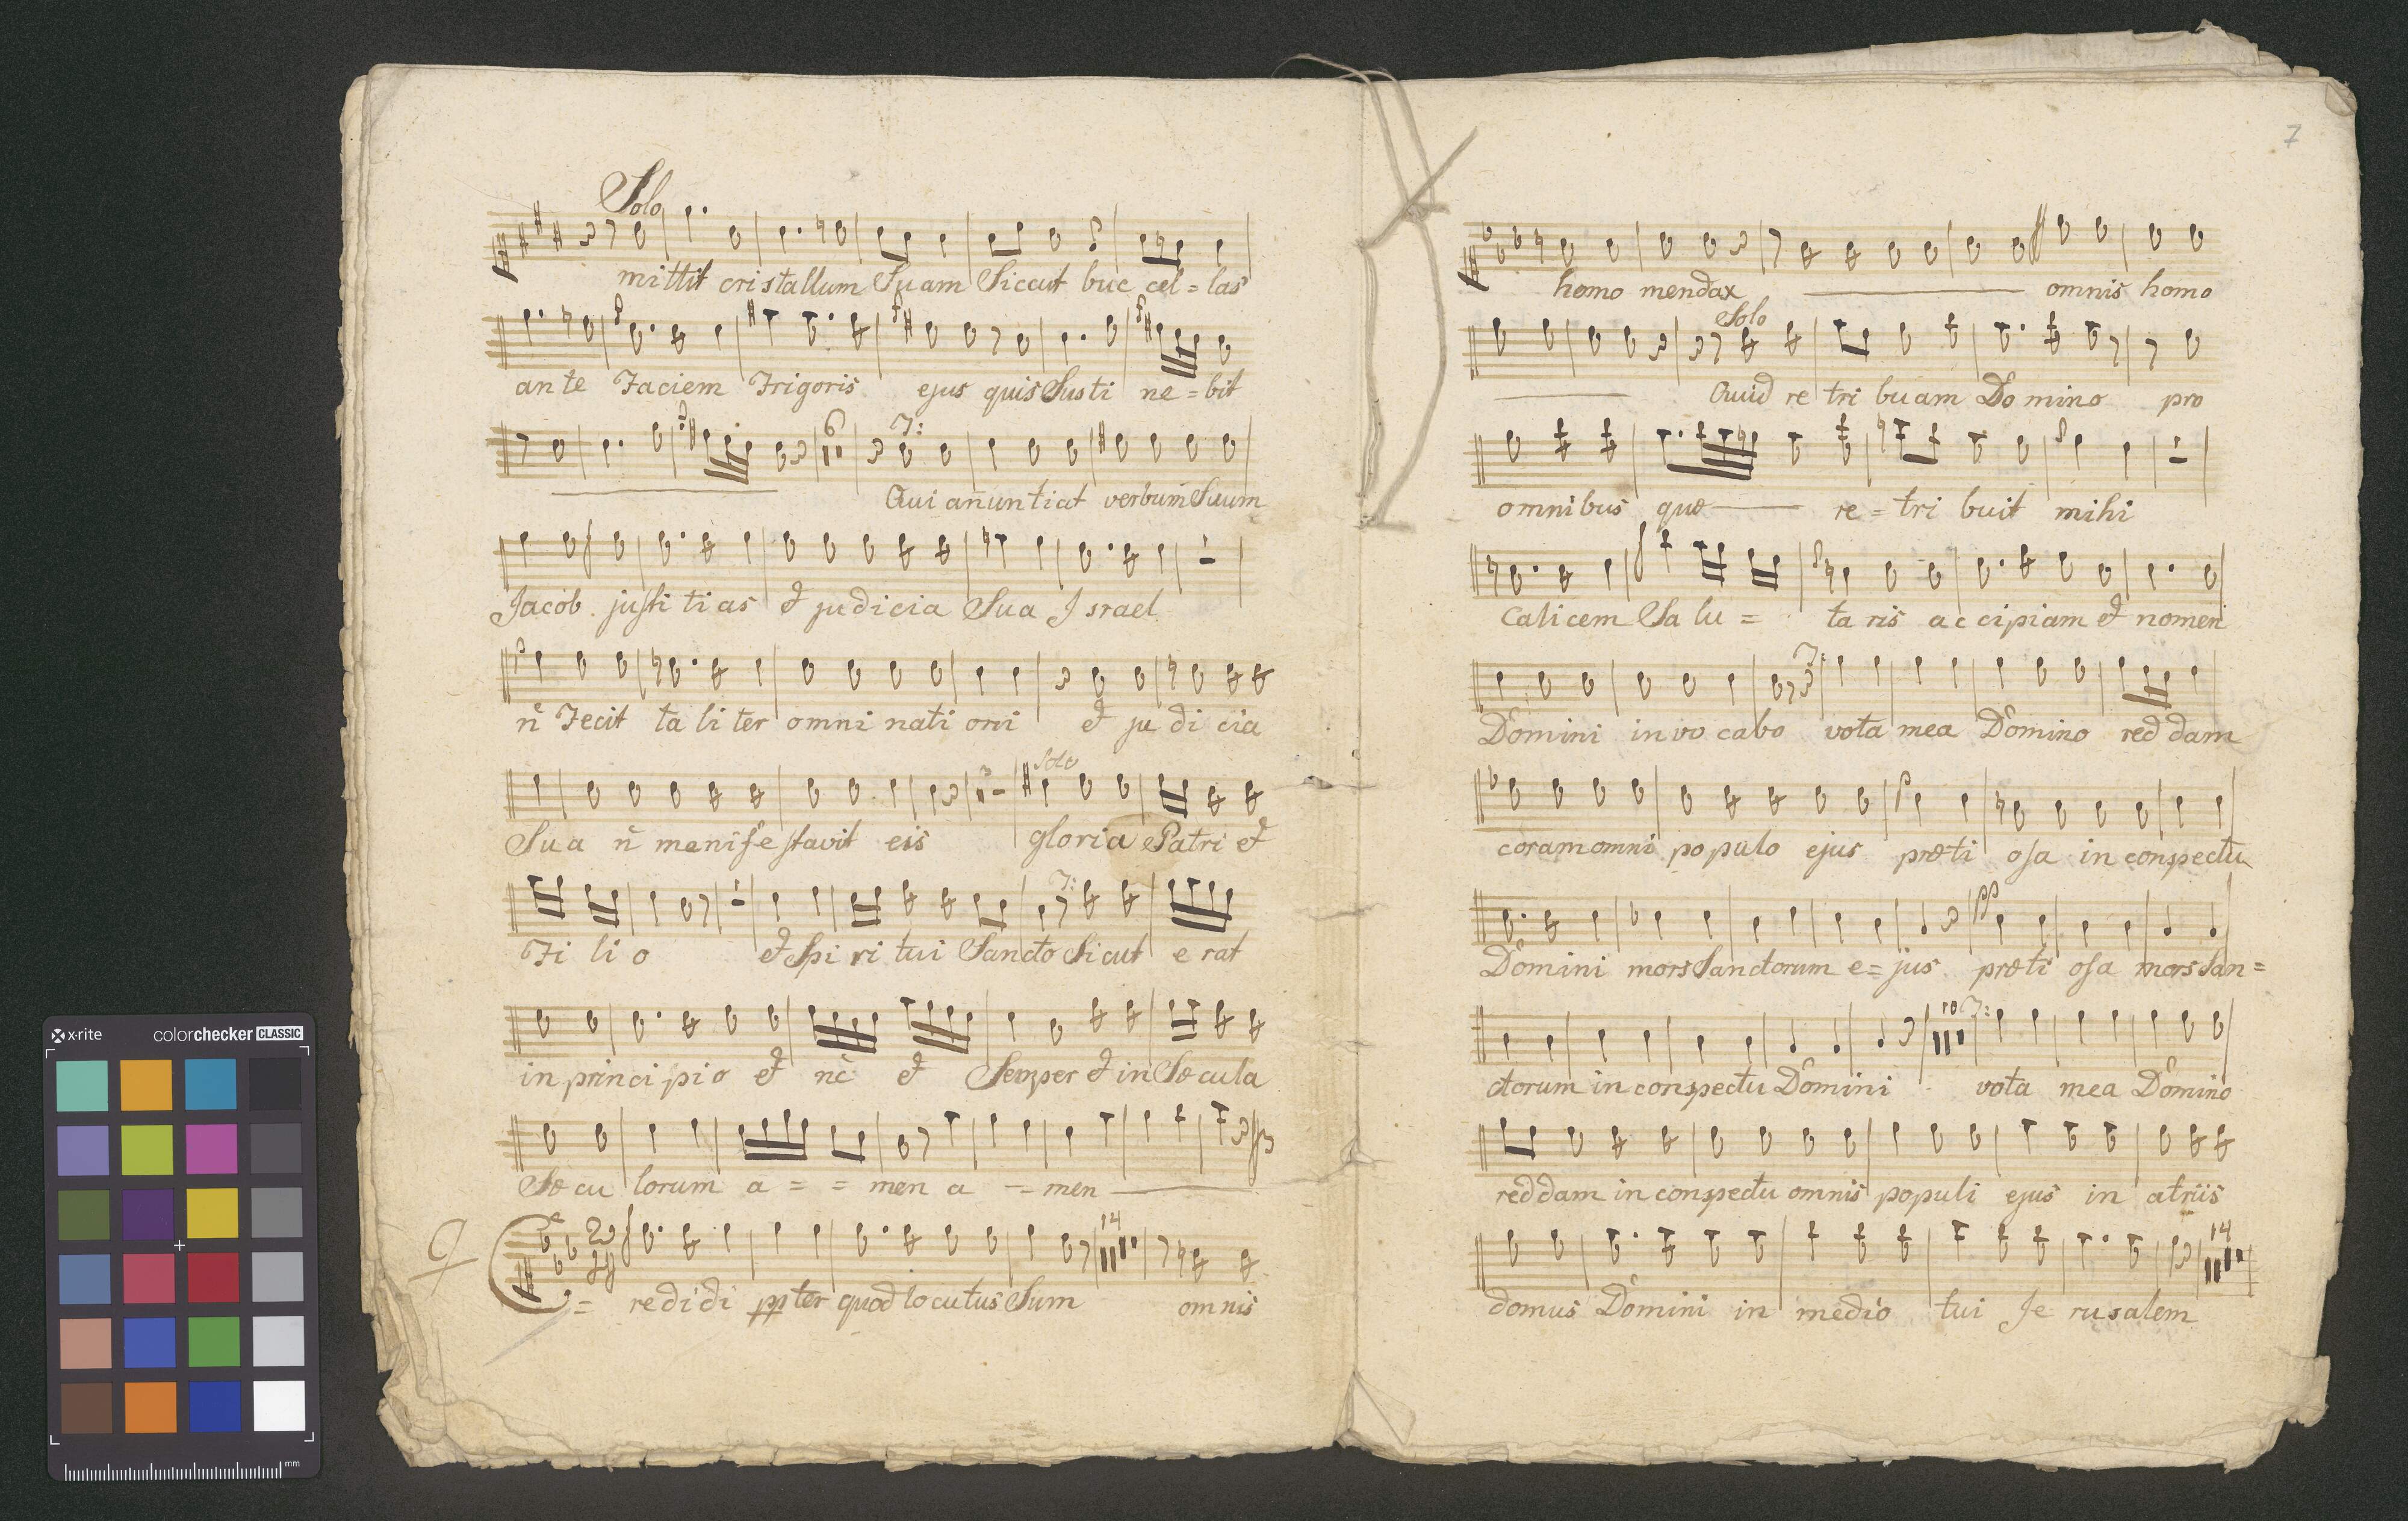 Solo
mittit cristallum Suam Siccut buc cel = las
ante Faciem Frigoris ejus quis Susti ne = bit
6 T:
Qui añuntiat verbum Suum
Jacob justitias et judicia Sua Israel
ñ Fecit taliter omni nationi et judicia
Solo
Sua ñ menifestavit eis gloria Patri et
T:
Filio et Spiritui Sancto Sicut erat
in principio et nc̃ et Semper et in Sæcula
Sæculorum a = = men a — men
14
C = redidi ppter quod locutus Sum omnis
7
homo mendax omnis homo
Solo
Quid retribuam Domino pro
omnibus quæ re = tribuit mihi
Calicem Salu = taris accipiam et nomen
T:
Domini invocabo vota mea Domino reddam
coram omni populo ejus præti osa in conspectu
pp
Domini mors Sanctorum e = jus præti osa mors San =
10 T:
ctorum in conspectu Domini vota mea Domino
reddam in conspectu omnis populi ejus in atriis
14
domus Domini in medio tui Jerusalem
x-rite colorchecker CLASSIC
mm